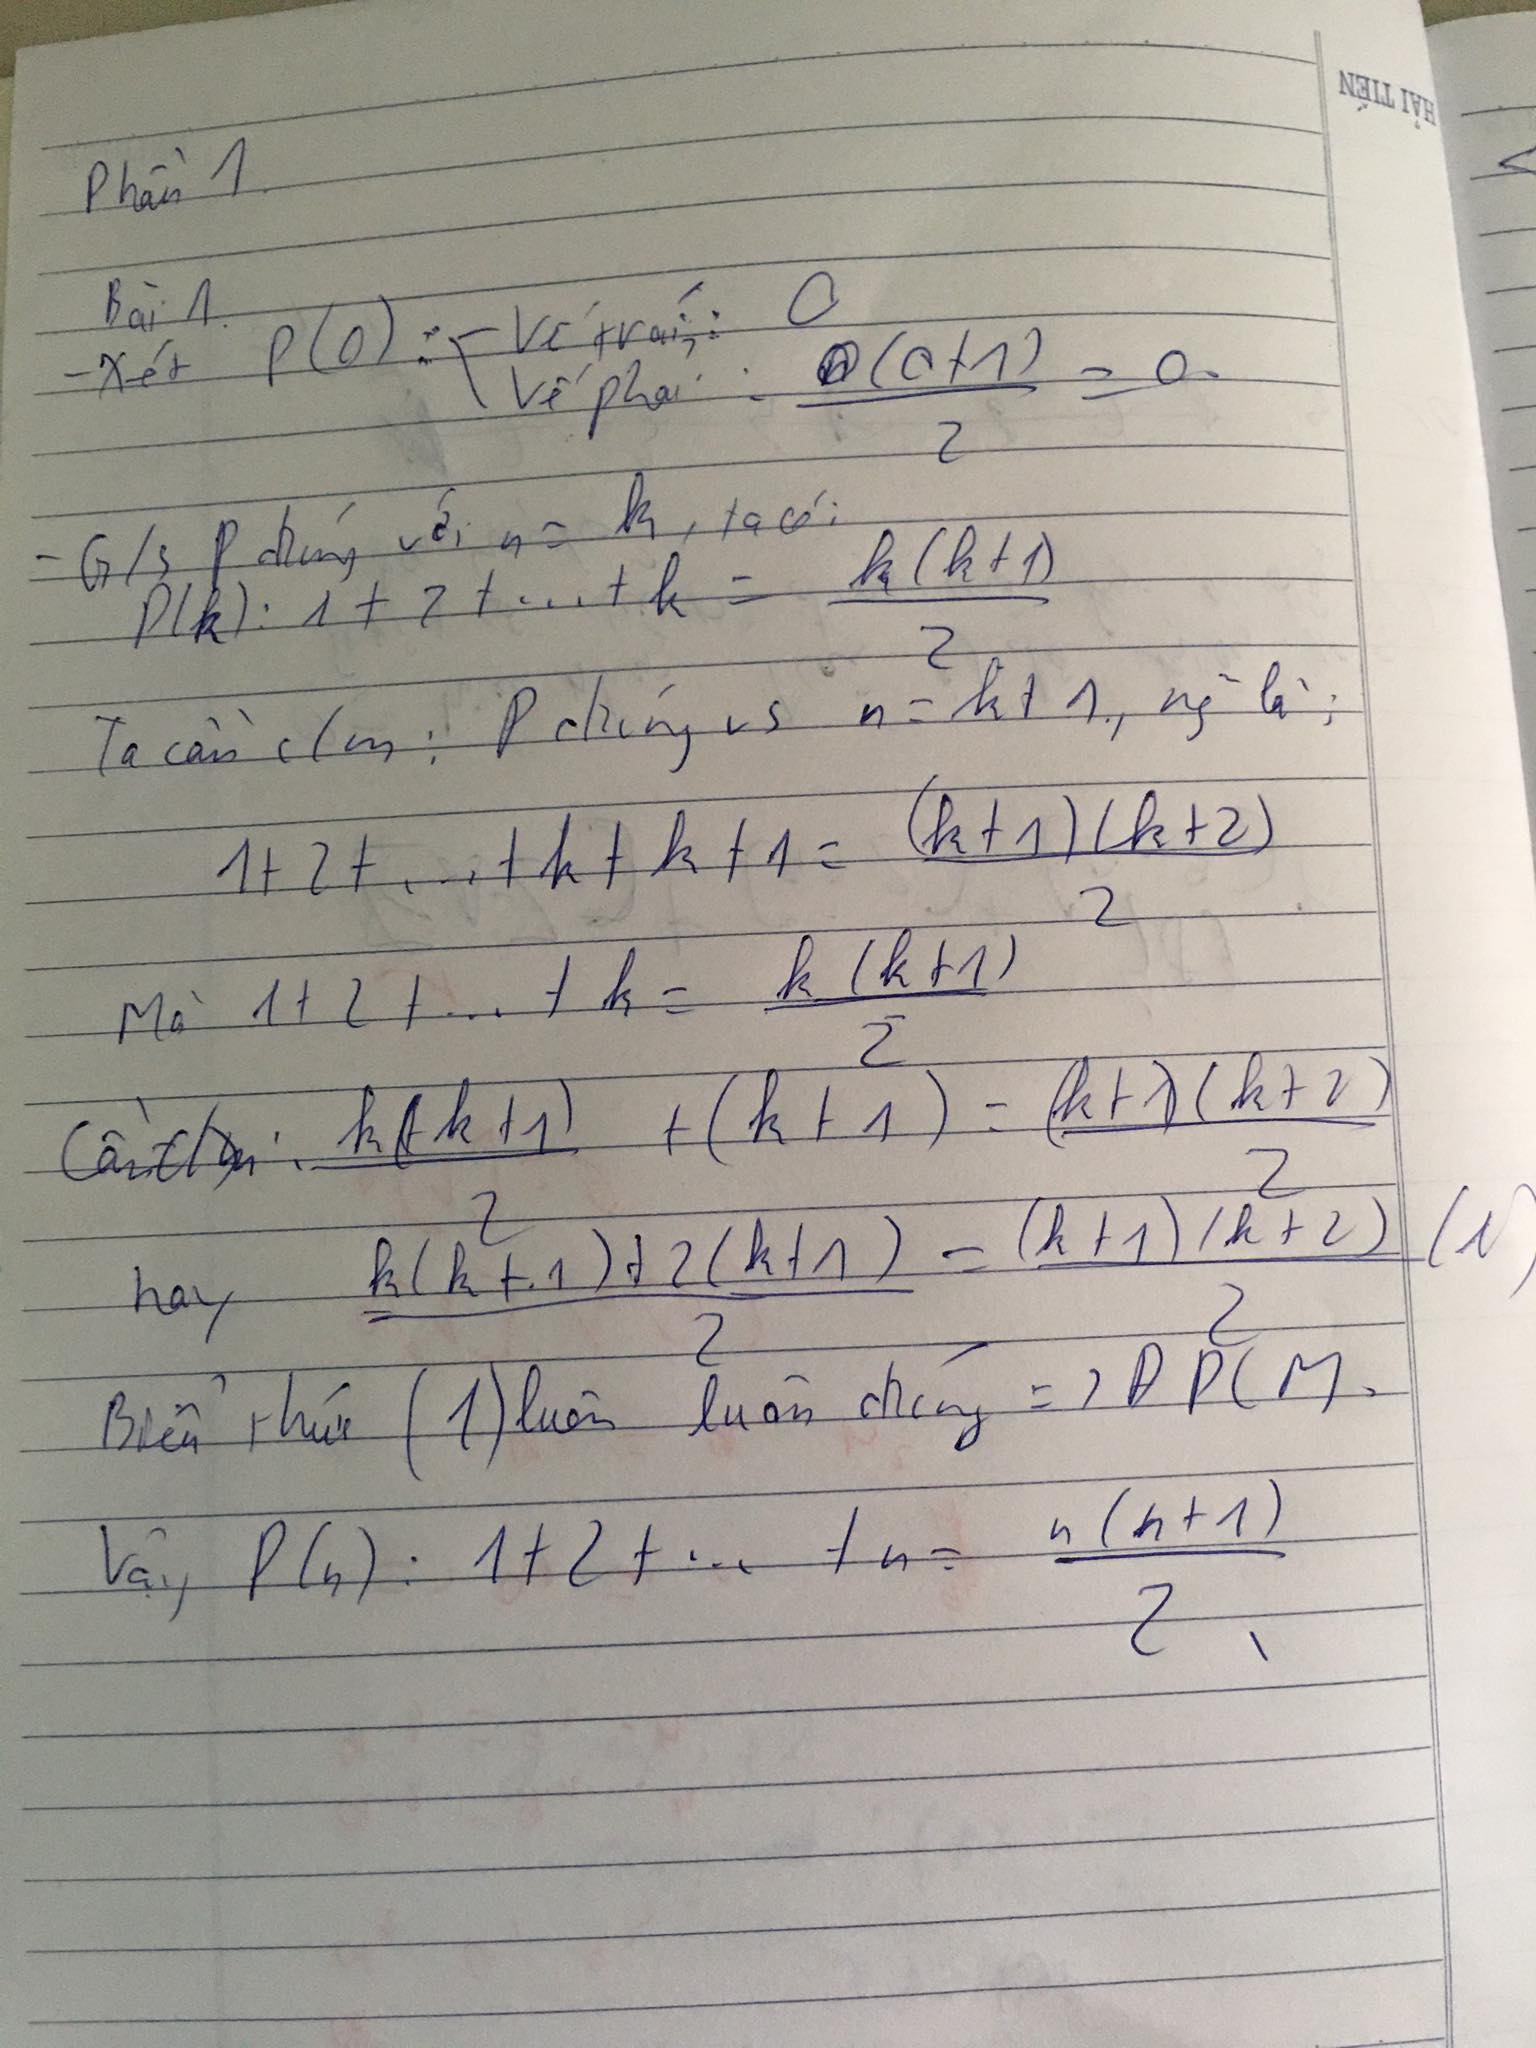 HẢI TIẾN
Phần 1.
Bài 1.
- Xét P(0): - Vế trái: 0
Vế phải: 0(0+1)/2 = 0.
- G/s P đúng với n = k, ta có:
P(k): 1 + 2 + ... + k = k(k+1)/2
Ta cần c/m: P đúng vs n = k+1, nghĩa là:
1 + 2 + ... + k + k + 1 = (k+1)(k+2)/2
Mà 1 + 2 + ... + k = k(k+1)/2
Cần c/m: k(k+1)/2 + (k+1) = (k+1)(k+2)/2
hay k(k+1)+2(k+1)/2 = (k+1)(k+2)/2 (1)
Biểu thức (1) luôn luôn đúng => ĐPCM.
Vậy P(n): 1 + 2 + ... + n = n(n+1)/2.